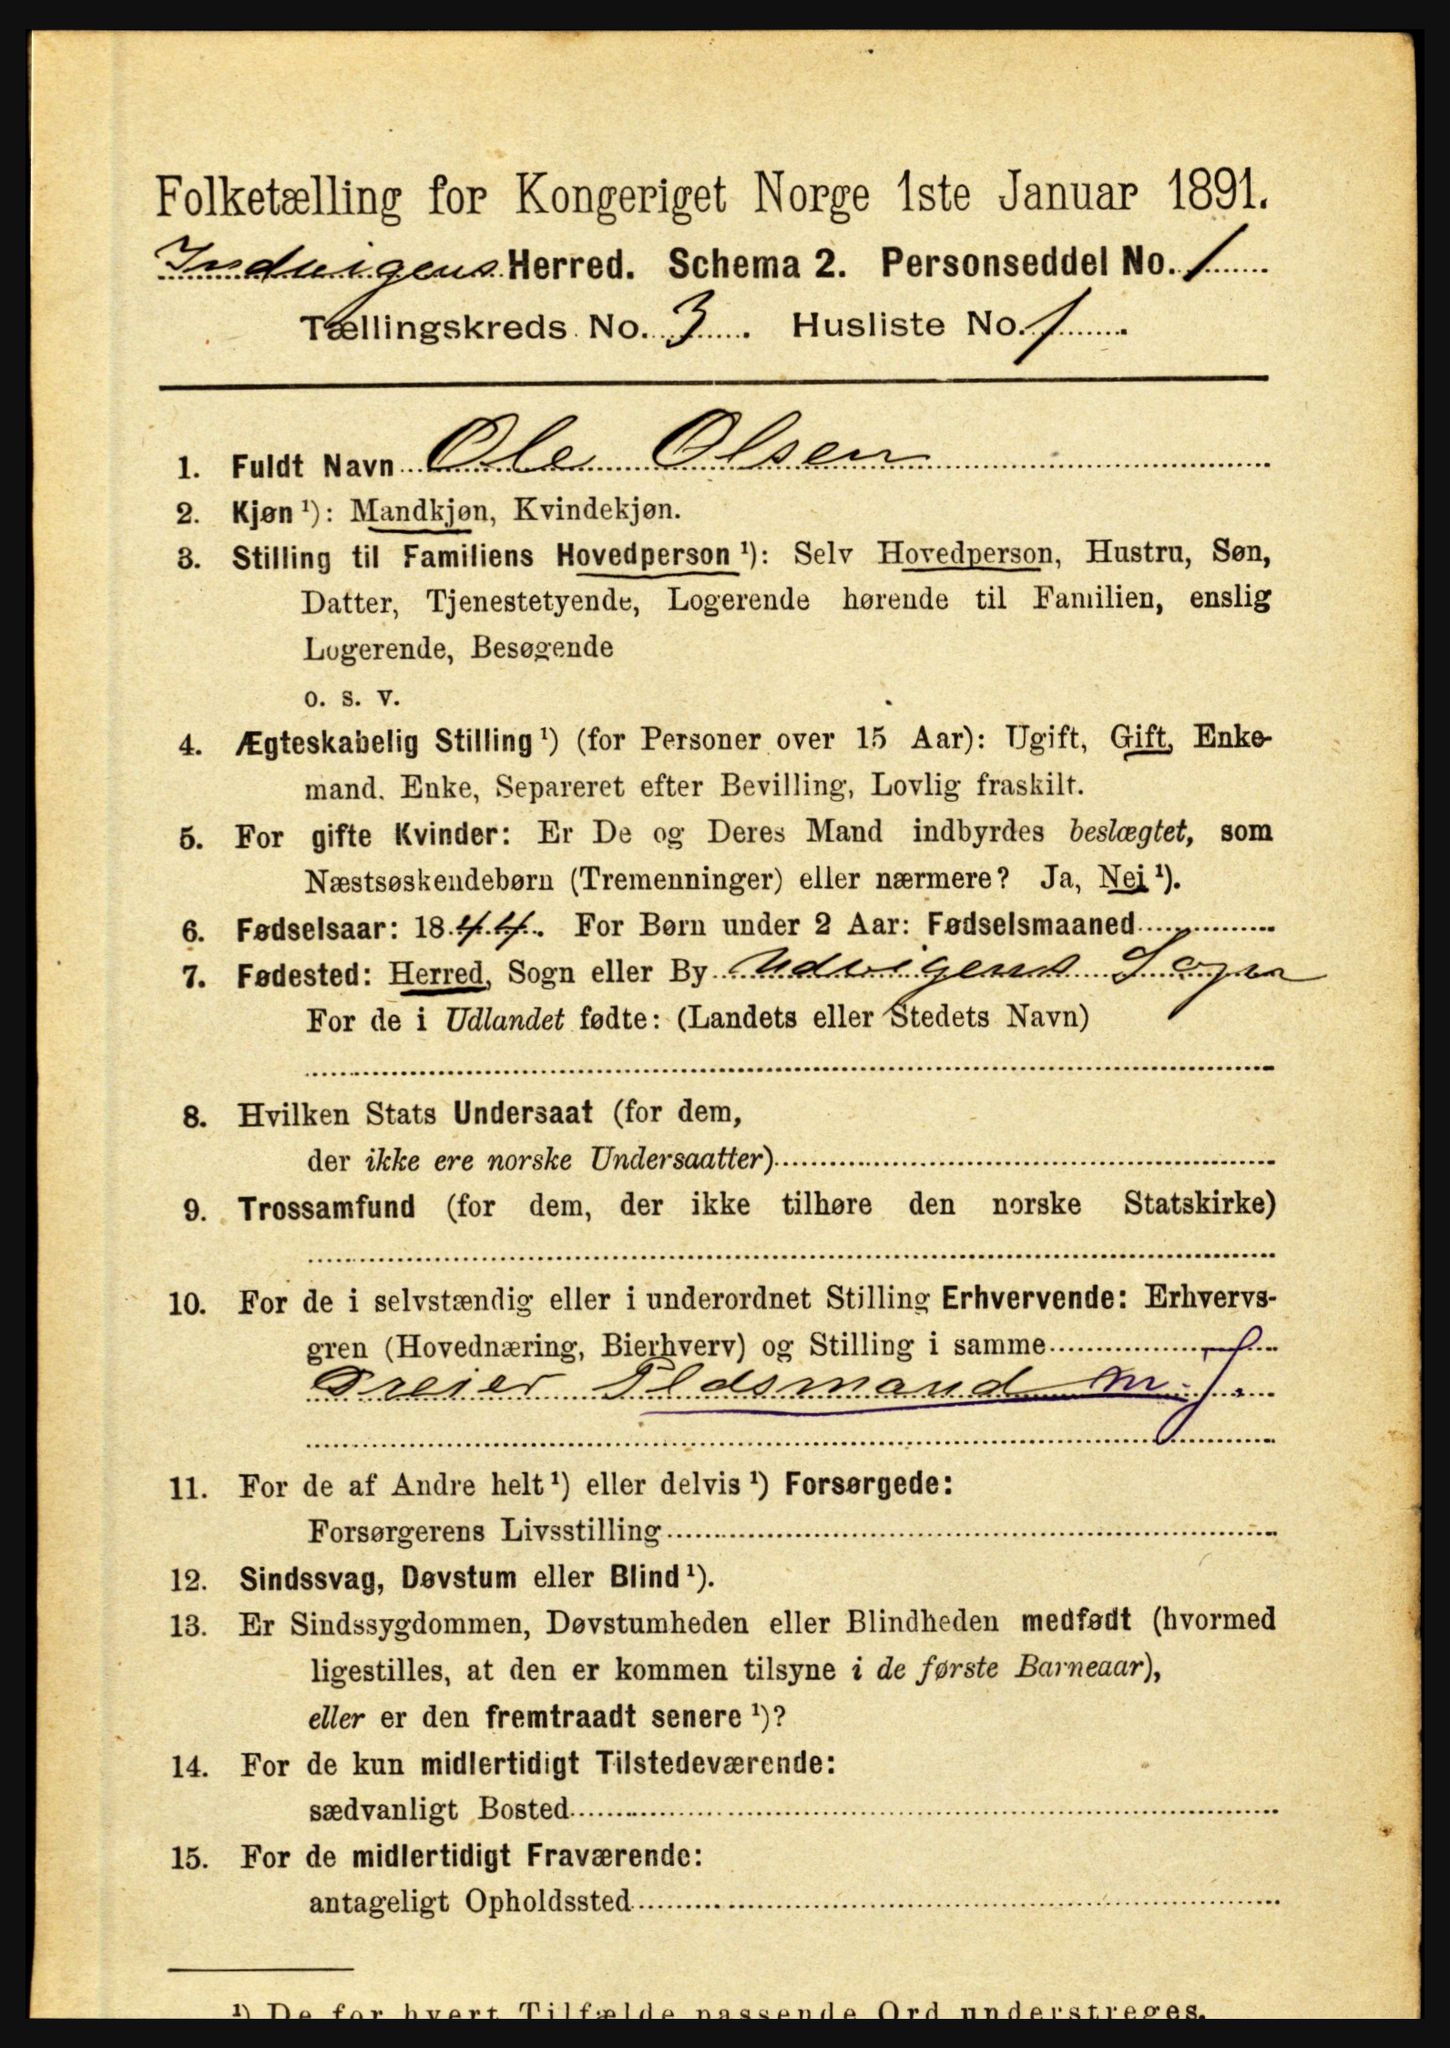 Folketælling for Kongeriget Norge 1ste Januar 1891.
Indvigens Herred. Schema 2. Personseddel No. 1
Tællingskreds No. 3. Husliste No. 1.
1. Fuldt Navn Ole Olsen
2. Kjøn ¹): Mandkjøn, Kvindekjøn.
3. Stilling til Familiens Hovedperson ¹): Selv Hovedperson, Hustru, Søn,
Datter, Tjenestetyende, Logerende hørende til Familien, enslig
Logerende, Besøgende
o. s. v.
4. Ægteskabelig Stilling ¹) (for Personer over 15 Aar): Ugift, Gift, Enke-
mand, Enke, Separeret efter Bevilling, Lovlig fraskilt.
5. For gifte Kvinder: Er De og Deres Mand indbyrdes beslægtet, som
Næstsøskendebørn (Tremenninger) eller nærmere? Ja, Nei ¹).
6. Fødselsaar: 1844. For Børn under 2 Aar: Fødselsmaaned
7. Fødested: Herred, Sogn eller By Udvigens Sogn
For de i Udlandet fødte: (Landets eller Stedets Navn)
8. Hvilken Stats Undersaat (for dem,
der ikke ere norske Undersaatter)
9. Trossamfund (for dem, der ikke tilhøre den norske Statskirke)
10. For de i selvstændig eller i underordnet Stilling Erhvervende: Erhvervs-
gren (Hovednæring, Bierhverv) og Stilling i samme
Pldsmand m. f.
11. For de af Andre helt ¹) eller delvis ¹) Forsørgede:
Forsørgerens Livsstilling
12. Sindssvag, Døvstum eller Blind ¹).
13. Er Sindssygdommen, Døvstumheden eller Blindheden medfødt (hvormed
ligestilles, at den er kommen tilsyne i de første Barneaar),
eller er den fremtraadt senere ¹)?
14. For de kun midlertidigt Tilstedeværende:
sædvanligt Bosted
15. For de midlertidigt Fraværende:
antageligt Opholdssted
¹) De for hvert Tilfælde passende Ord understreges.